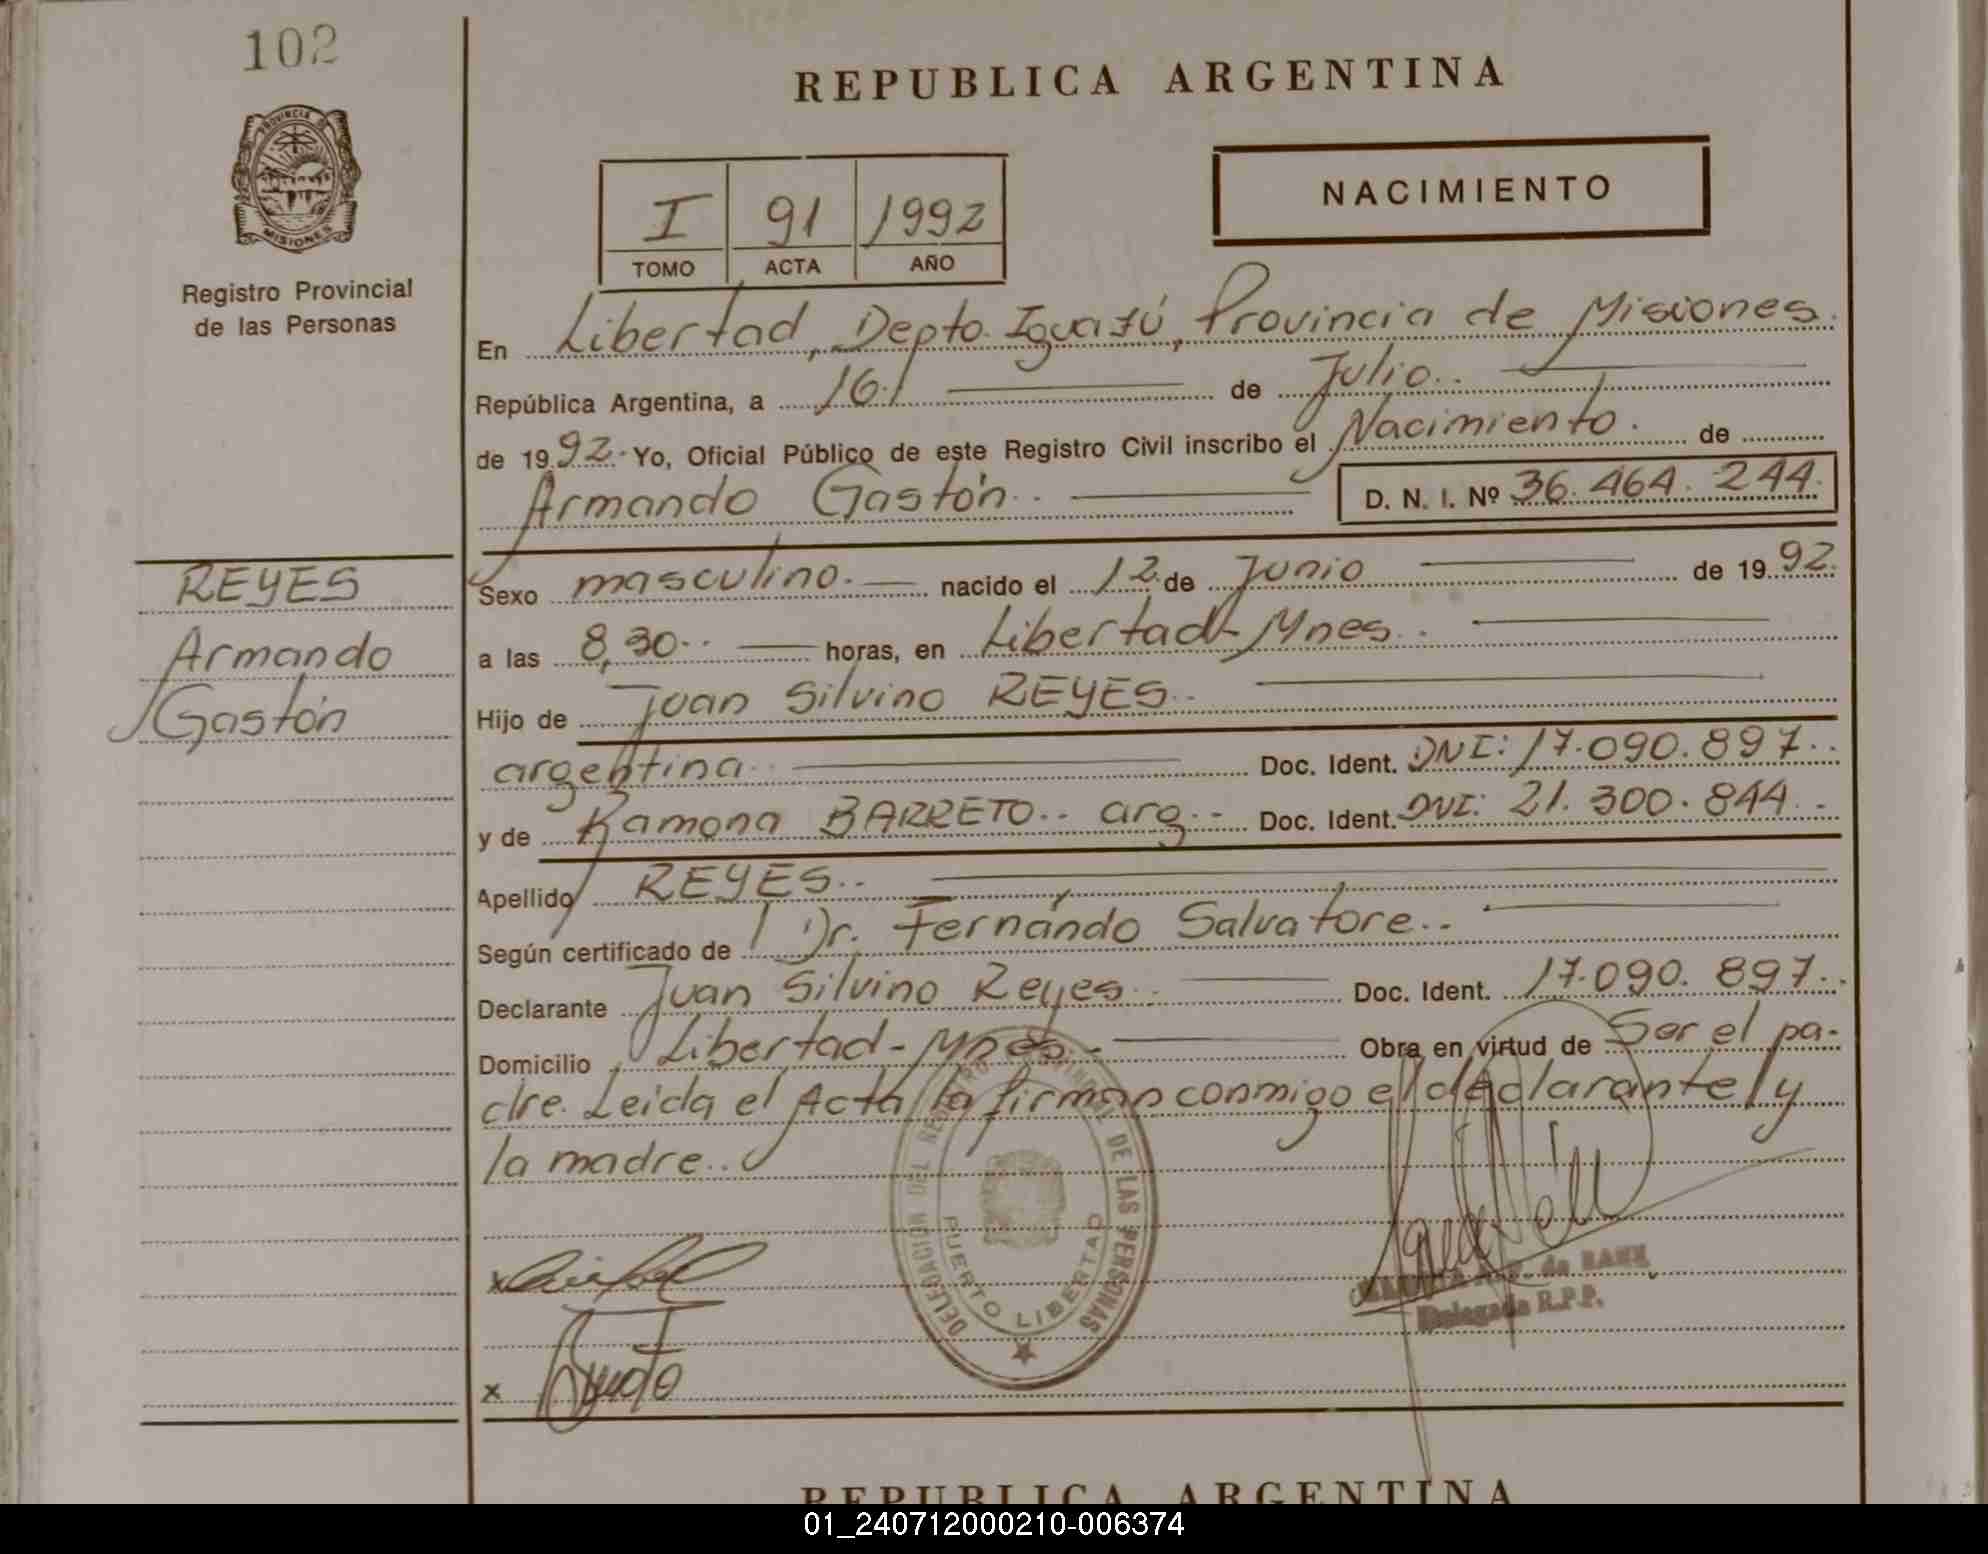 102
PROVINCIA DE
MISIONES
Registro Provincial
de las Personas
REYES
Armando
Gastón
REPUBLICA ARGENTINA
NACIMIENTO
I 91 1992
TOMO ACTA AÑO
En Libertad, Depto. Iguazú, Provincia de Misiones.
República Argentina, a 16 de Julio..
de 1992. Yo, Oficial Público de este Registro Civil inscribo el Nacimiento. de
Armando Gastón.. D. N. I. Nº 36.464.244.
Sexo masculino. nacido el 12 de Junio de 1992.
a las 8,30.. horas, en Libertad-Mnes..
Hijo de Juan Silvino REYES..
argentina.. Doc. Ident. DNI: 17.090.897..
y de Ramona BARRETO.. arg.- Doc. Ident. DNI: 21.300.844..
Apellido REYES..
Según certificado de Dr. Fernándo Salvatore..
Declarante Juan Silvino Reyes.. Doc. Ident. 17.090.897..
Domicilio Libertad-Mnes.- Obra en virtud de Ser el pa-
dre. Leida el Acta la firman conmigo el declarante y
la madre..
DELEGACION DEL REGISTRO PROVINCIAL DE LAS PERSONAS
PUERTO LIBERTAD
x
de
Delegada R.P.P.
x
REPUBLICA ARGENTINA
01_240712000210-006374